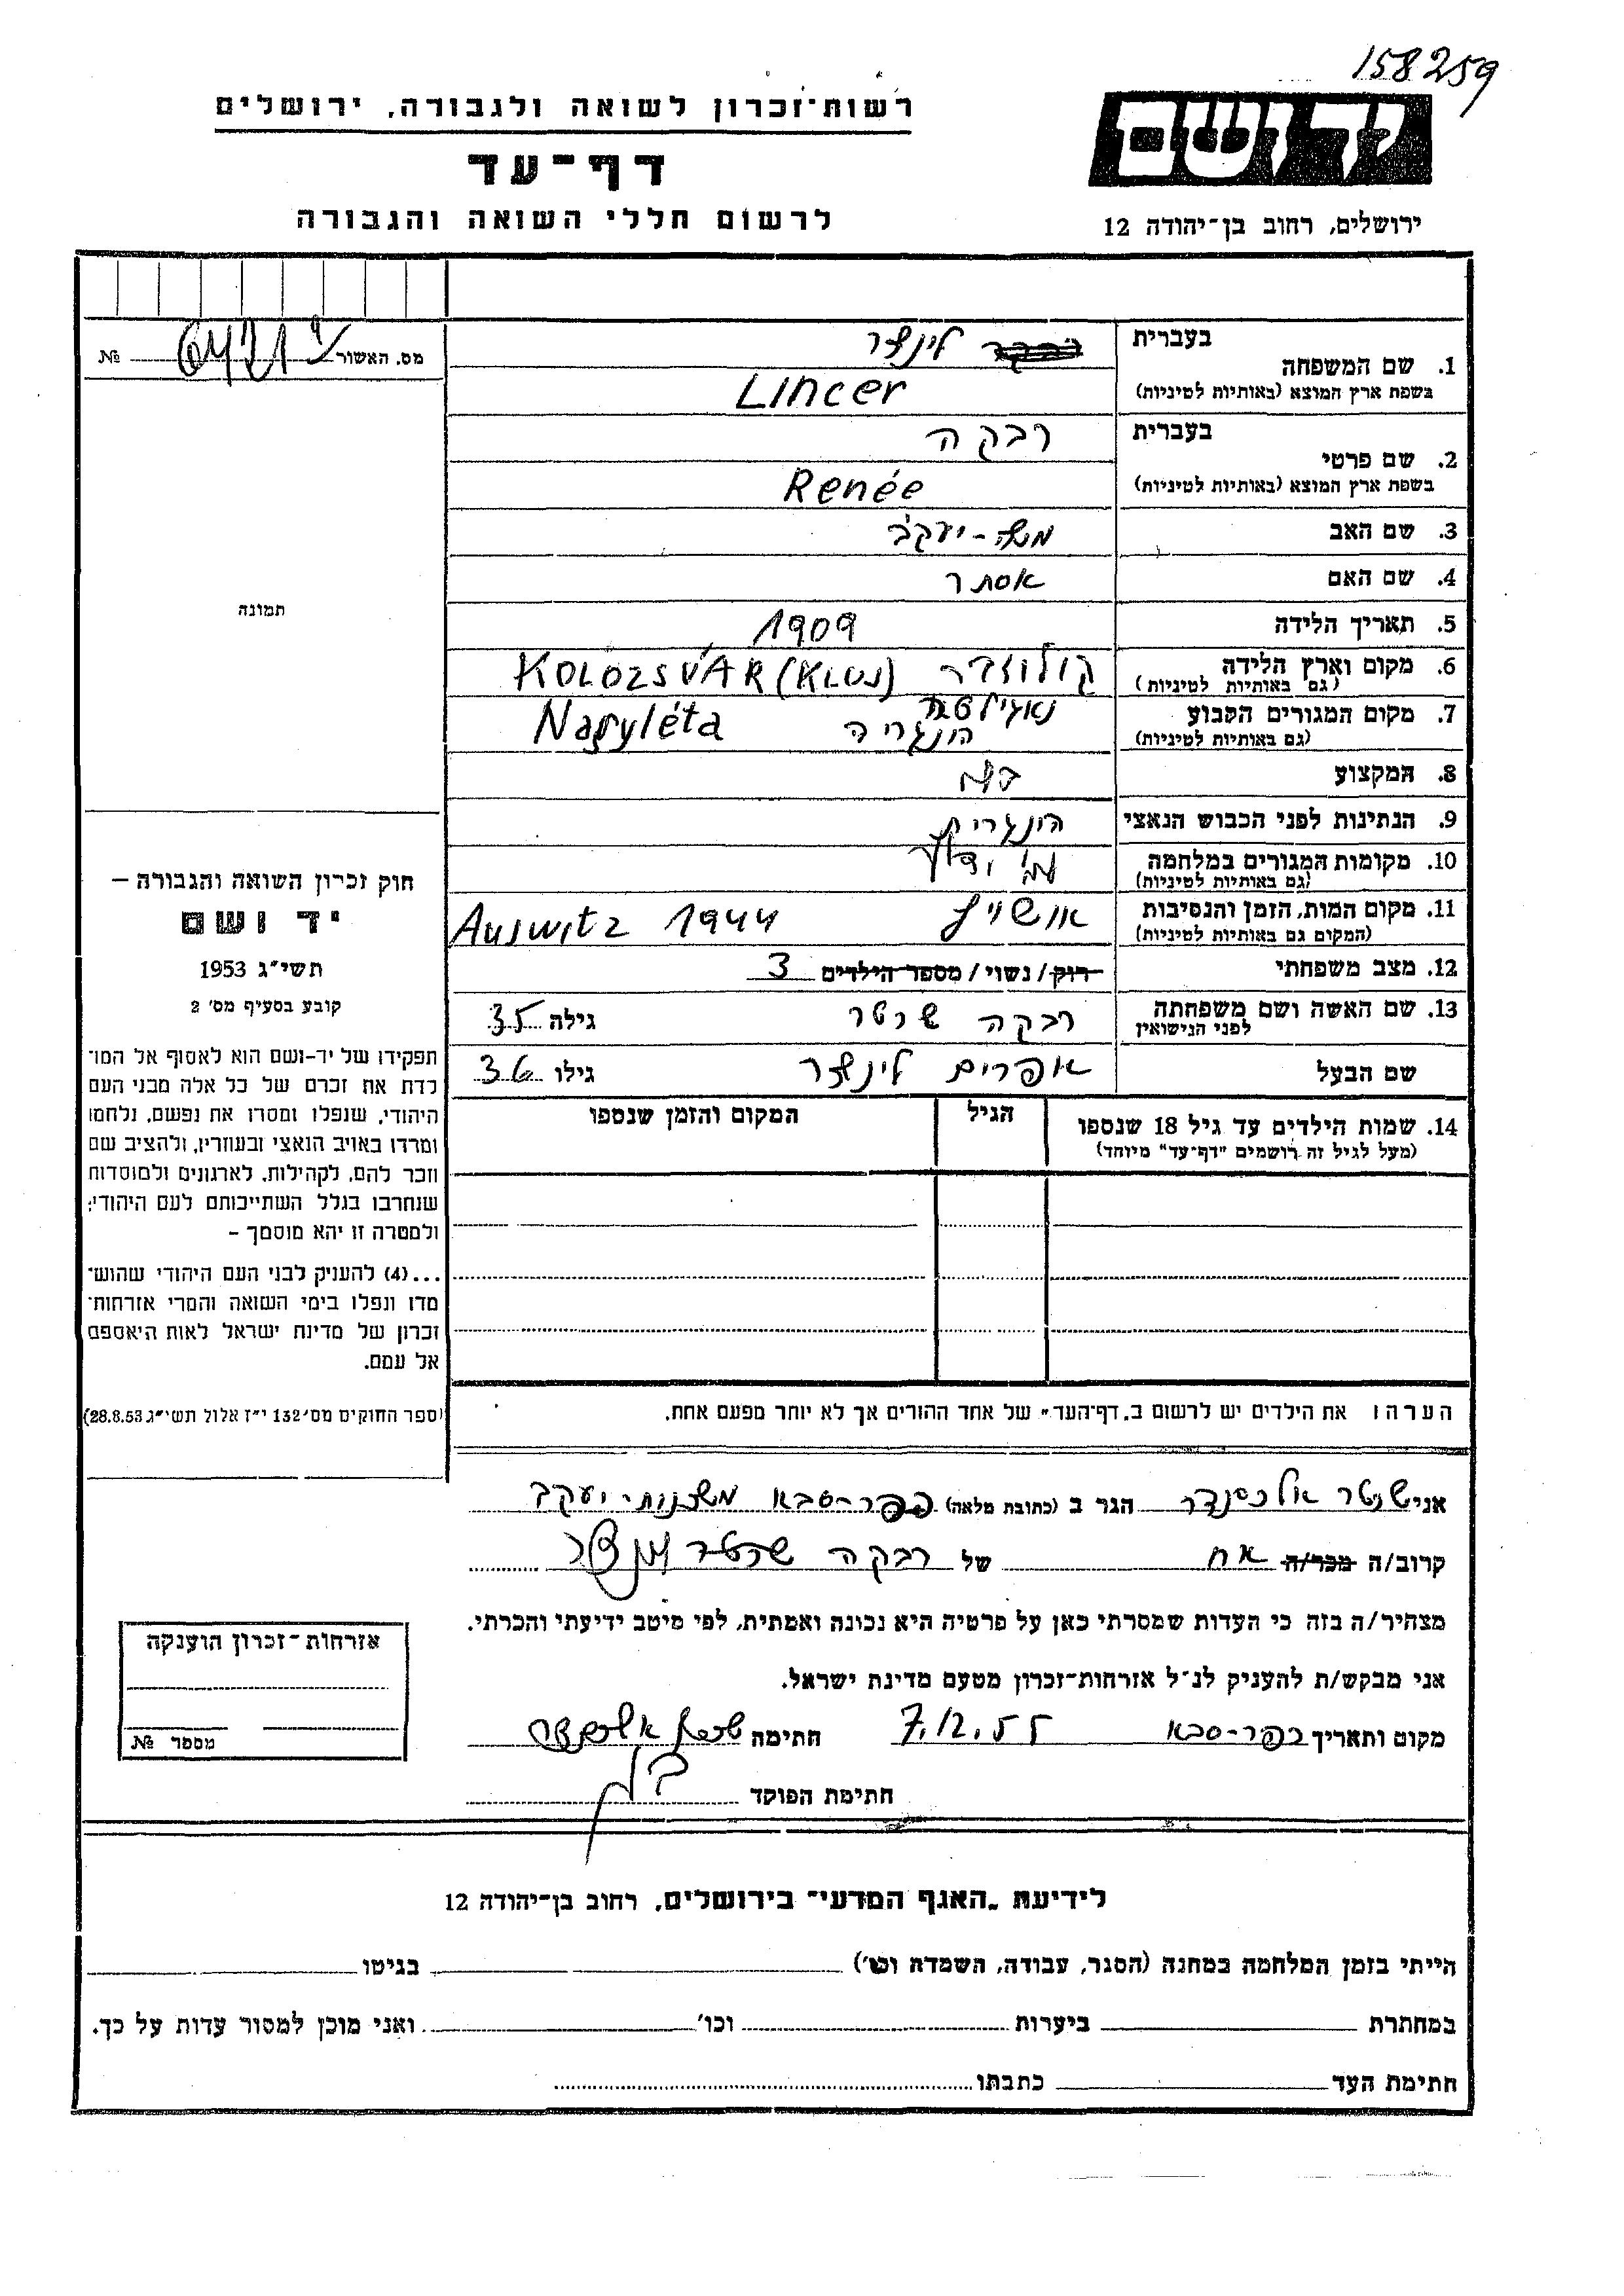 158259
רשות-זכרון לשואה ולגבורה, ירושלים
דף-עד
לרשום חללי השואה והגבורה
יד ושם
ירושלים, רחוב בן-יהודה 12
מס. האשור № 
1. שם המשפחה בעברית לינצר
בשפת ארץ המוצא (באותיות לטיניות) Lincer
2. שם פרטי בעברית רבקה
בשפת ארץ המוצא (באותיות לטיניות) Renée
3. שם האב משה-יעקב
4. שם האם אסתר
5. תאריך הלידה 1909
6. מקום וארץ הלידה (גם באותיות לטיניות) KOLOZSVÁR (KLUJ)
7. מקום המגורים הקבוע (גם באותיות לטיניות) הונגריה Nagyléta
8. המקצוע
9. הנתינות לפני הכבוש הנאצי הונגרית
10. מקומות המגורים במלחמה (גם באותיות לטיניות)
11. מקום המות, הזמן והנסיבות (המקום גם באותיות לטיניות) אושויץ Auswitz 1944
12. מצב משפחתי רוק/נשוי/מספר הילדים 3
13. שם האשה ושם משפחתה לפני הנישואין רבקה שרטר גילה 35
שם הבעל אפרים לינצר גילו 36
14. שמות הילדים עד גיל 18 שנספו (מעל לגיל זה רושמים "דף-עד" מיוחד) הגיל המקום והזמן שנספו
תמונה
חוק זכרון השואה והגבורה –
יד ושם
תשי"ג 1953
קובע בסעיף מס' 2
תפקידו של יד-ושם הוא לאסוף אל המו־
לדת את זכרם של כל אלה מבני העם
היהודי, שנפלו ומסרו את נפשם, נלחמו
ומרדו באויב הנאצי ובעוזריו, ולהציב שם
וזכר להם, לקהילות, לארגונים ולמוסדות
שנחרבו בגלל השתייכותם לעם היהודי;
ולמטרה זו יהא מוסמך –
...(4) להעניק לבני העם היהודי שהוש־
מדו ונפלו בימי השואה והמרי אזרחות־
זכרון של מדינת ישראל לאות היאספם
אל עמם.
(ספר החוקים מס' 132 י"ז אלול תשי"ג 28.8.53)
הערה: את הילדים יש לרשום ב"דף-העד" של אחד ההורים אך לא יותר מפעם אחת.
אני אלכסנדר הגר ב (כתובת מלאה) כפר-סבא משכנות-יעקב
קרוב/ה מכר/ה אח של רבקה שרטר לינצר
מצהיר/ה בזה כי העדות שמסרתי כאן על פרטיה היא נכונה ואמתית, לפי מיטב ידיעתי והכרתי.
אני מבקש/ת להעניק לנ"ל אזרחות-זכרון מטעם מדינת ישראל.
מקום ותאריך כפר-סבא 7.12.55 חתימה
חתימת הפוקד
אזרחות-זכרון הוענקה
מספר №
לידיעת "האגף המדעי" בירושלים, רחוב בן-יהודה 12
הייתי בזמן המלחמה במחנה (הסגר, עבודה, השמדה וכו') בגיטו
במחתרת ביערות וכו' ואני מוכן למסור עדות על כך.
חתימת העד כתבתו